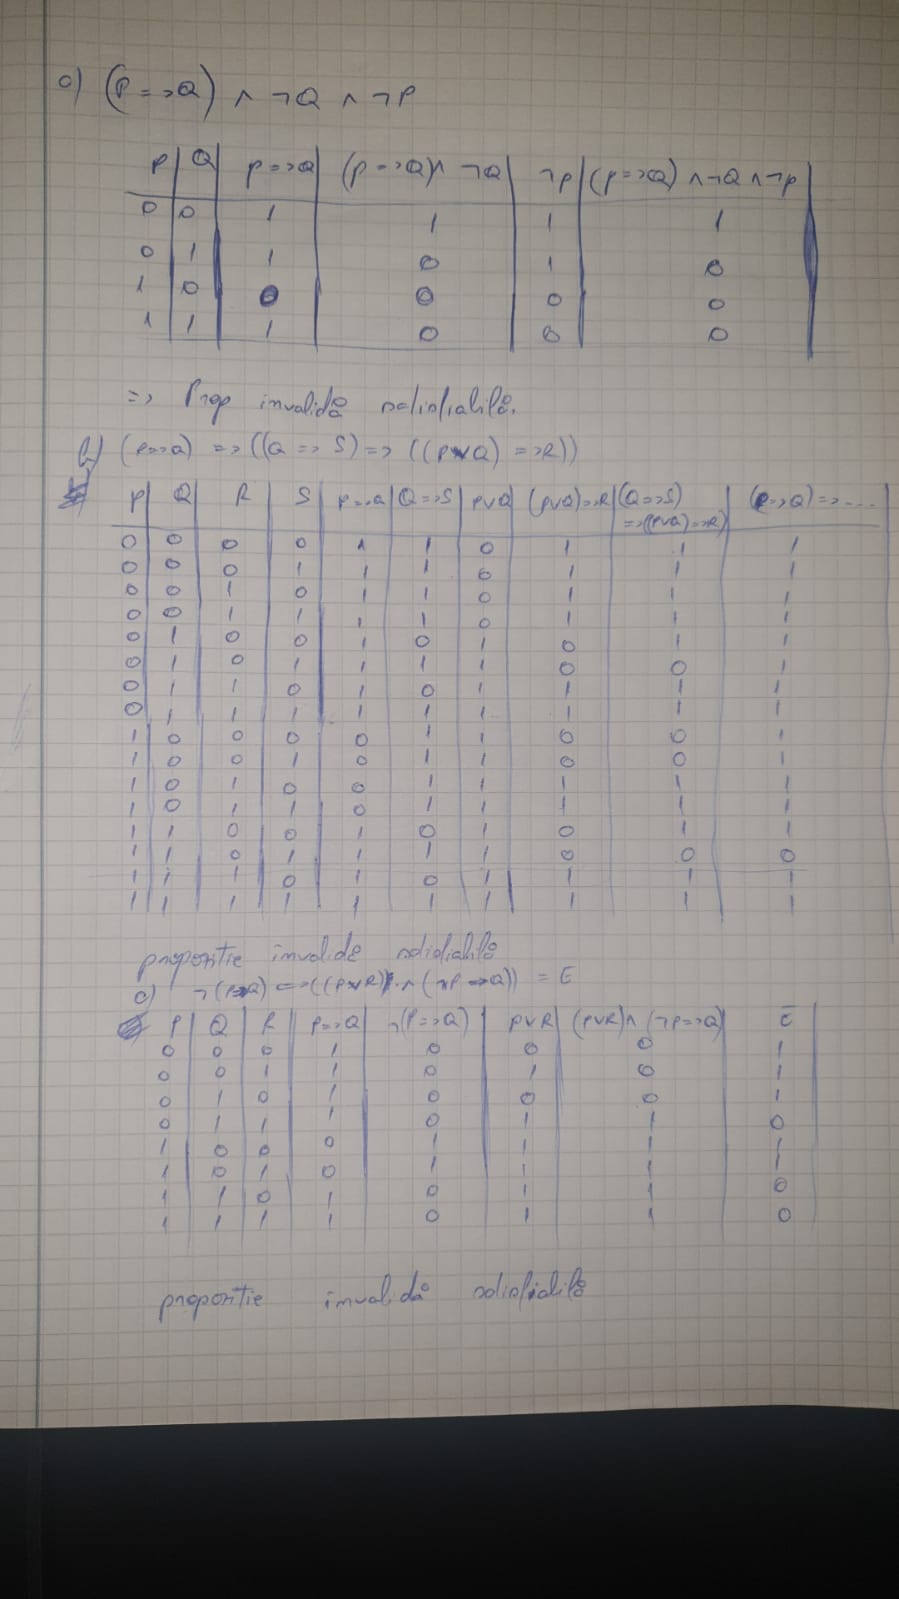 a) (P => Q) ∧ ¬Q ∧ ¬P
P | Q | P => Q | (P => Q) ∧ ¬Q | ¬P | (P => Q) ∧ ¬Q ∧ ¬P
0 0 1 1 1 1
0 1 1 0 1 0
1 0 0 0 0 0
1 1 1 0 0 0
=> Prop invalidă satisfiabilă.
b) (P => Q) => ((Q => S) => ((P ∨ Q) => R))
P | Q | R | S | P => Q | Q => S | P ∨ Q | (P ∨ Q) => R | (Q => S) => ((P ∨ Q) => R) | (P => Q) => ....
0 0 0 0 1 1 0 1 1 1
0 0 0 1 1 1 0 1 1 1
0 0 1 0 1 1 0 1 1 1
0 0 1 1 1 1 0 1 1 1
0 1 0 0 1 0 1 0 1 1
0 1 0 1 1 1 1 0 0 1
0 1 1 0 1 0 1 1 1 1
0 1 1 1 1 1 1 1 1 1
1 0 0 0 0 1 1 0 0 1
1 0 0 1 0 1 1 0 0 1
1 0 1 0 0 1 1 1 1 1
1 0 1 1 0 1 1 1 1 1
1 1 0 0 1 0 1 0 1 1
1 1 0 1 1 1 1 0 0 0
1 1 1 0 1 0 1 1 1 1
1 1 1 1 1 1 1 1 1 1
propozitie invalidă satisfiabilă
c) ¬(P => Q) <=> ((P ∨ R) ∧ (¬P => Q)) = E
P | Q | R | P => Q | ¬(P => Q) | P ∨ R | (P ∨ R) ∧ (¬P => Q) | E
0 0 0 1 0 0 0 1
0 0 1 1 0 1 0 1
0 1 0 1 0 0 0 1
0 1 1 1 0 1 1 0
1 0 0 0 1 1 1 1
1 0 1 0 1 1 1 1
1 1 0 1 0 1 1 0
1 1 1 1 0 1 1 0
propozitie invalidă satisfiabilă